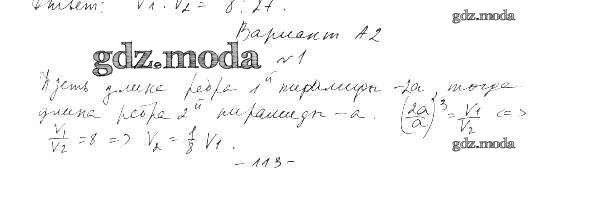 Ответ: V₁ : V₂ = 8 : 27.
gdz.moda
Вариант А2
gdz.moda
№1
Пусть длина ребра 1й пирамиды -2a, тогда
длина ребра 2й пирамиды -a. (2a/a)³ = V₁/V₂ <=>
V₁/V₂ = 8 => V₂ = 1/8 V₁.
gdz.moda
-113-